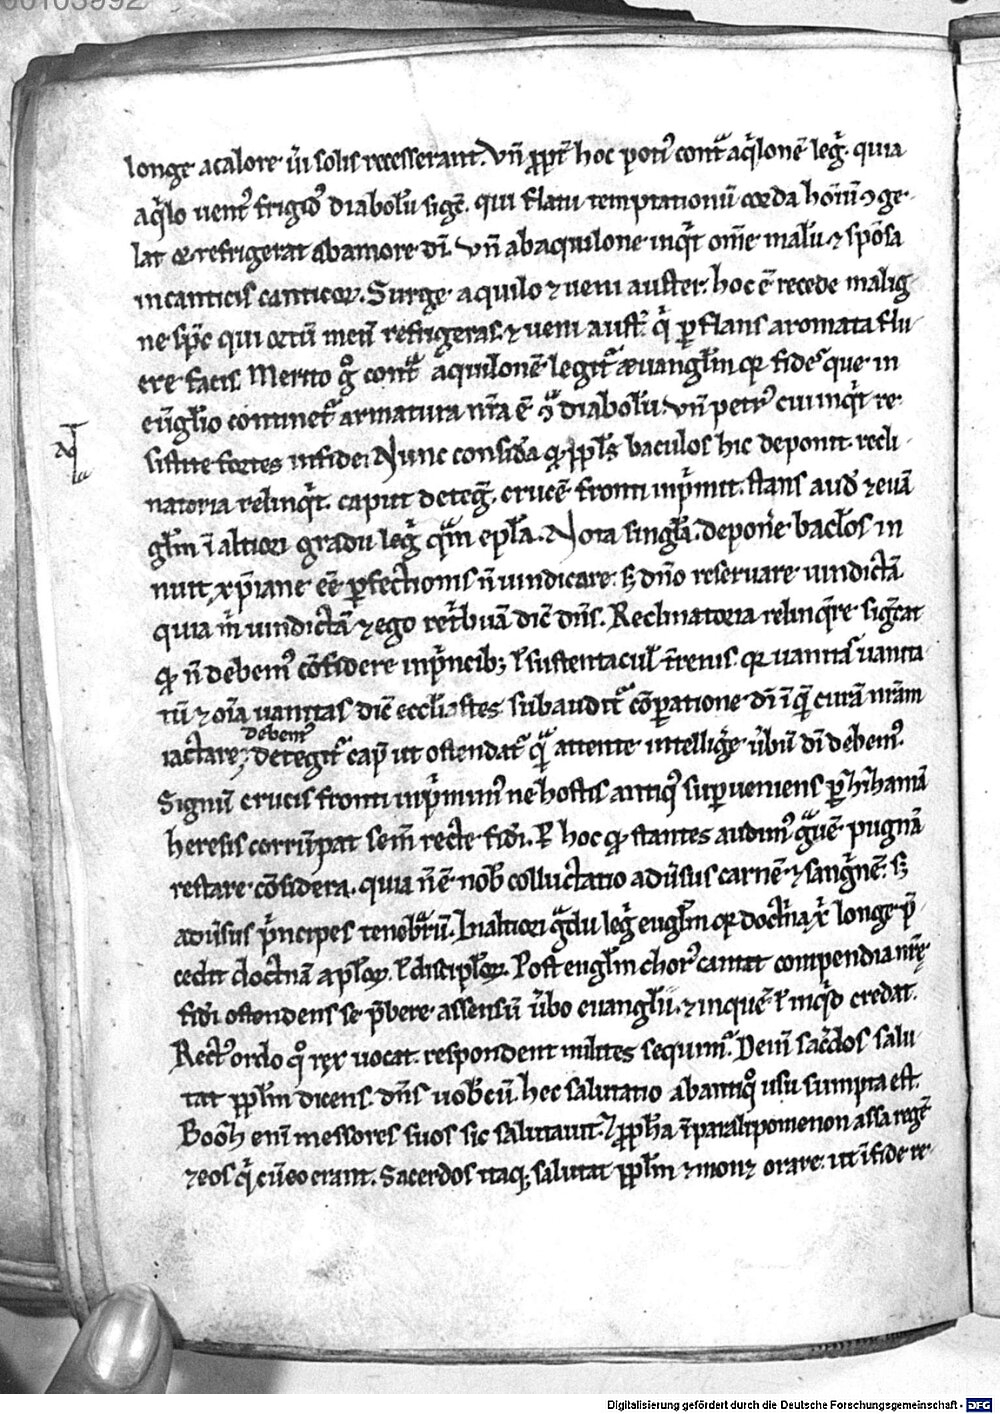 00103992
longe a calore ũi solis recesserant. Vñ ꝓpt̃ hoc poti᷒ cont̃ aq̇lonẽ leg̃. quia
aq̇lo uent᷒ frigid᷒ diabolũ sig̃t. qui flatu temptationũ corda hoĩũ ꝯge-
lat & refrigerat ab amore dĩ. Vñ ab aquilone inq̇t om̃e malũ. ⁊ spõsa
in canticis canticoꝝ. Surge aquilo ⁊ ueni auster. hoc ẽ recede malig
ne sp̃c qui ortũ meũ refrigeras. ⁊ ueni aust̃. q̇ ꝑflans aromata flu-
ere facis. Merito g̊ cont̃ aquilonẽ legit᷒ æuangl̃m qꝛ fides que in
eũgl̃io continet᷒ armatura nr̃a ẽ ꝯ̃ diabolũ. Vñ petr᷒ cui inq̇t re-
sistite fortes in fide. Nunc consid̃a qđ ppl̃s baculos hic deponit. recli-
natoria relinq̇t. caput deteg̃. crucẽ fronti inp̃mit. stans aud̃ ⁊ euã
gl̃m ĩ altiori gradu leg̃ q̃m epl̃a. Nota singl̃a. deponẽ bacl̃os in
nuit xp̃iane eẽ ꝑfectionis ñ uindicare. sꝫ dño reseruare uindictã
quia m̃ uindictã ⁊ ego ret̃buã dic̃ dñs. Reclinatoria relinq̃re sig̃cat
qđ ñ debem᷒ cõfidere in p̃ncib; ł sustentacul̃ t̃renis. qꝛ uanitas uanita
tũ ⁊ oĩa uanitas dic̃ eccl̃iastes subaudit᷒ cõparatione dĩ ĩ q̃ curã nr̃am
iactare debem᷒. detegit᷒ cap̃ ut ostendat᷒ q̃ attente intellig̃e ũbũ dĩ debem᷒.
Signũ crucis fronti inp̃mim᷒ ne hostis antiq᷒ superueniens ꝑ hũhanã
heresis corrũpat sem̃ recte fidĩ. P̱ hoc qđ stantes audim᷒ g̃uẽ pugnã
restare cõsidera. quia ñ ẽ nob̃ colluctatio adũsus carnẽ ⁊ sang̃nẽ. sꝫ
adũsus p̃ncipes tenebr̃ũ. In altiori g̃du leg̃ eugl̃m qꝛ doct̃na xp̃ longe p̃-
cedit doct̃nã apl̃oꝝ. ł discipl̃oꝝ. Post eugl̃m chor᷒ cantat compendia nr̃ę
fidĩ ostendens se p̃bere assensũ ũbo euangl̃ii. ⁊ in quẽ ł in q̇d credat.
Rect᷒ ordo q̊ rex uocat. respondent milites sequim᷒. Deiñ sac̃dos salu
tat ppl̃m dicens. dñs uob̃cũ. hec salutatio ab antiq̊ usu sumpta est.
Booz̃ enĩ messores suos sic salutauit. ⁊ ꝓph̃a ĩ paralipomenon assa regẽ
⁊ eos q̇ cũ eo erant. Sacerdos itaq; salutat ppl̃m ⁊ monꝫ orare. ut ĩ fide re-
Digitalisierung gefördert durch die Deutsche Forschungsgemeinschaft - DFG